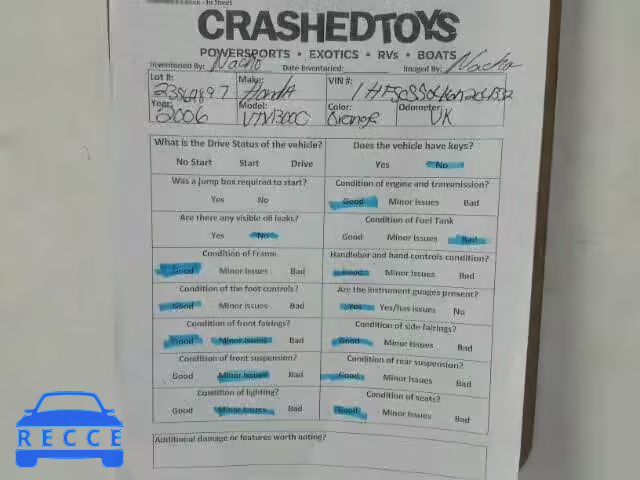 k - In Sheet
CRASHEDTOYS
POWERSPORTS • EXOTICS • RVs • BOATS
Inventoried By: Nacho Date Inventoried: Imaged By: Nacho
Lot #: Make: VIN #:
Honda
Year: Model: Color: Odometer:
2006 VTX1300C Orange UK
What is the Drive Status of the vehicle? Does the vehicle have keys?
No Start Start Drive Yes No
Was a jump box required to start? Condition of engine and transmission?
Yes No Good Minor Issues Bad
Are there any visible oil leaks? Condition of Fuel Tank
Yes No Good Minor Issues Bad
Condition of Frame Handlebar and hand controls condition?
Good Minor Issues Bad Good Minor Issues Bad
Condition of the foot controls? Are the instrument guages present?
Good Minor Issues Bad Yes Yes/has issues No
Condition of front fairings? Condition of side fairings?
Good Minor Issues Bad Good Minor Issues Bad
Condition of front suspension? Condition of rear suspension?
Good Minor Issues Bad Good Minor Issues Bad
Condition of lighting? Condition of seats?
Good Minor Issues Bad Good Minor Issues Bad
Additional damage or features worth noting?
RECCE